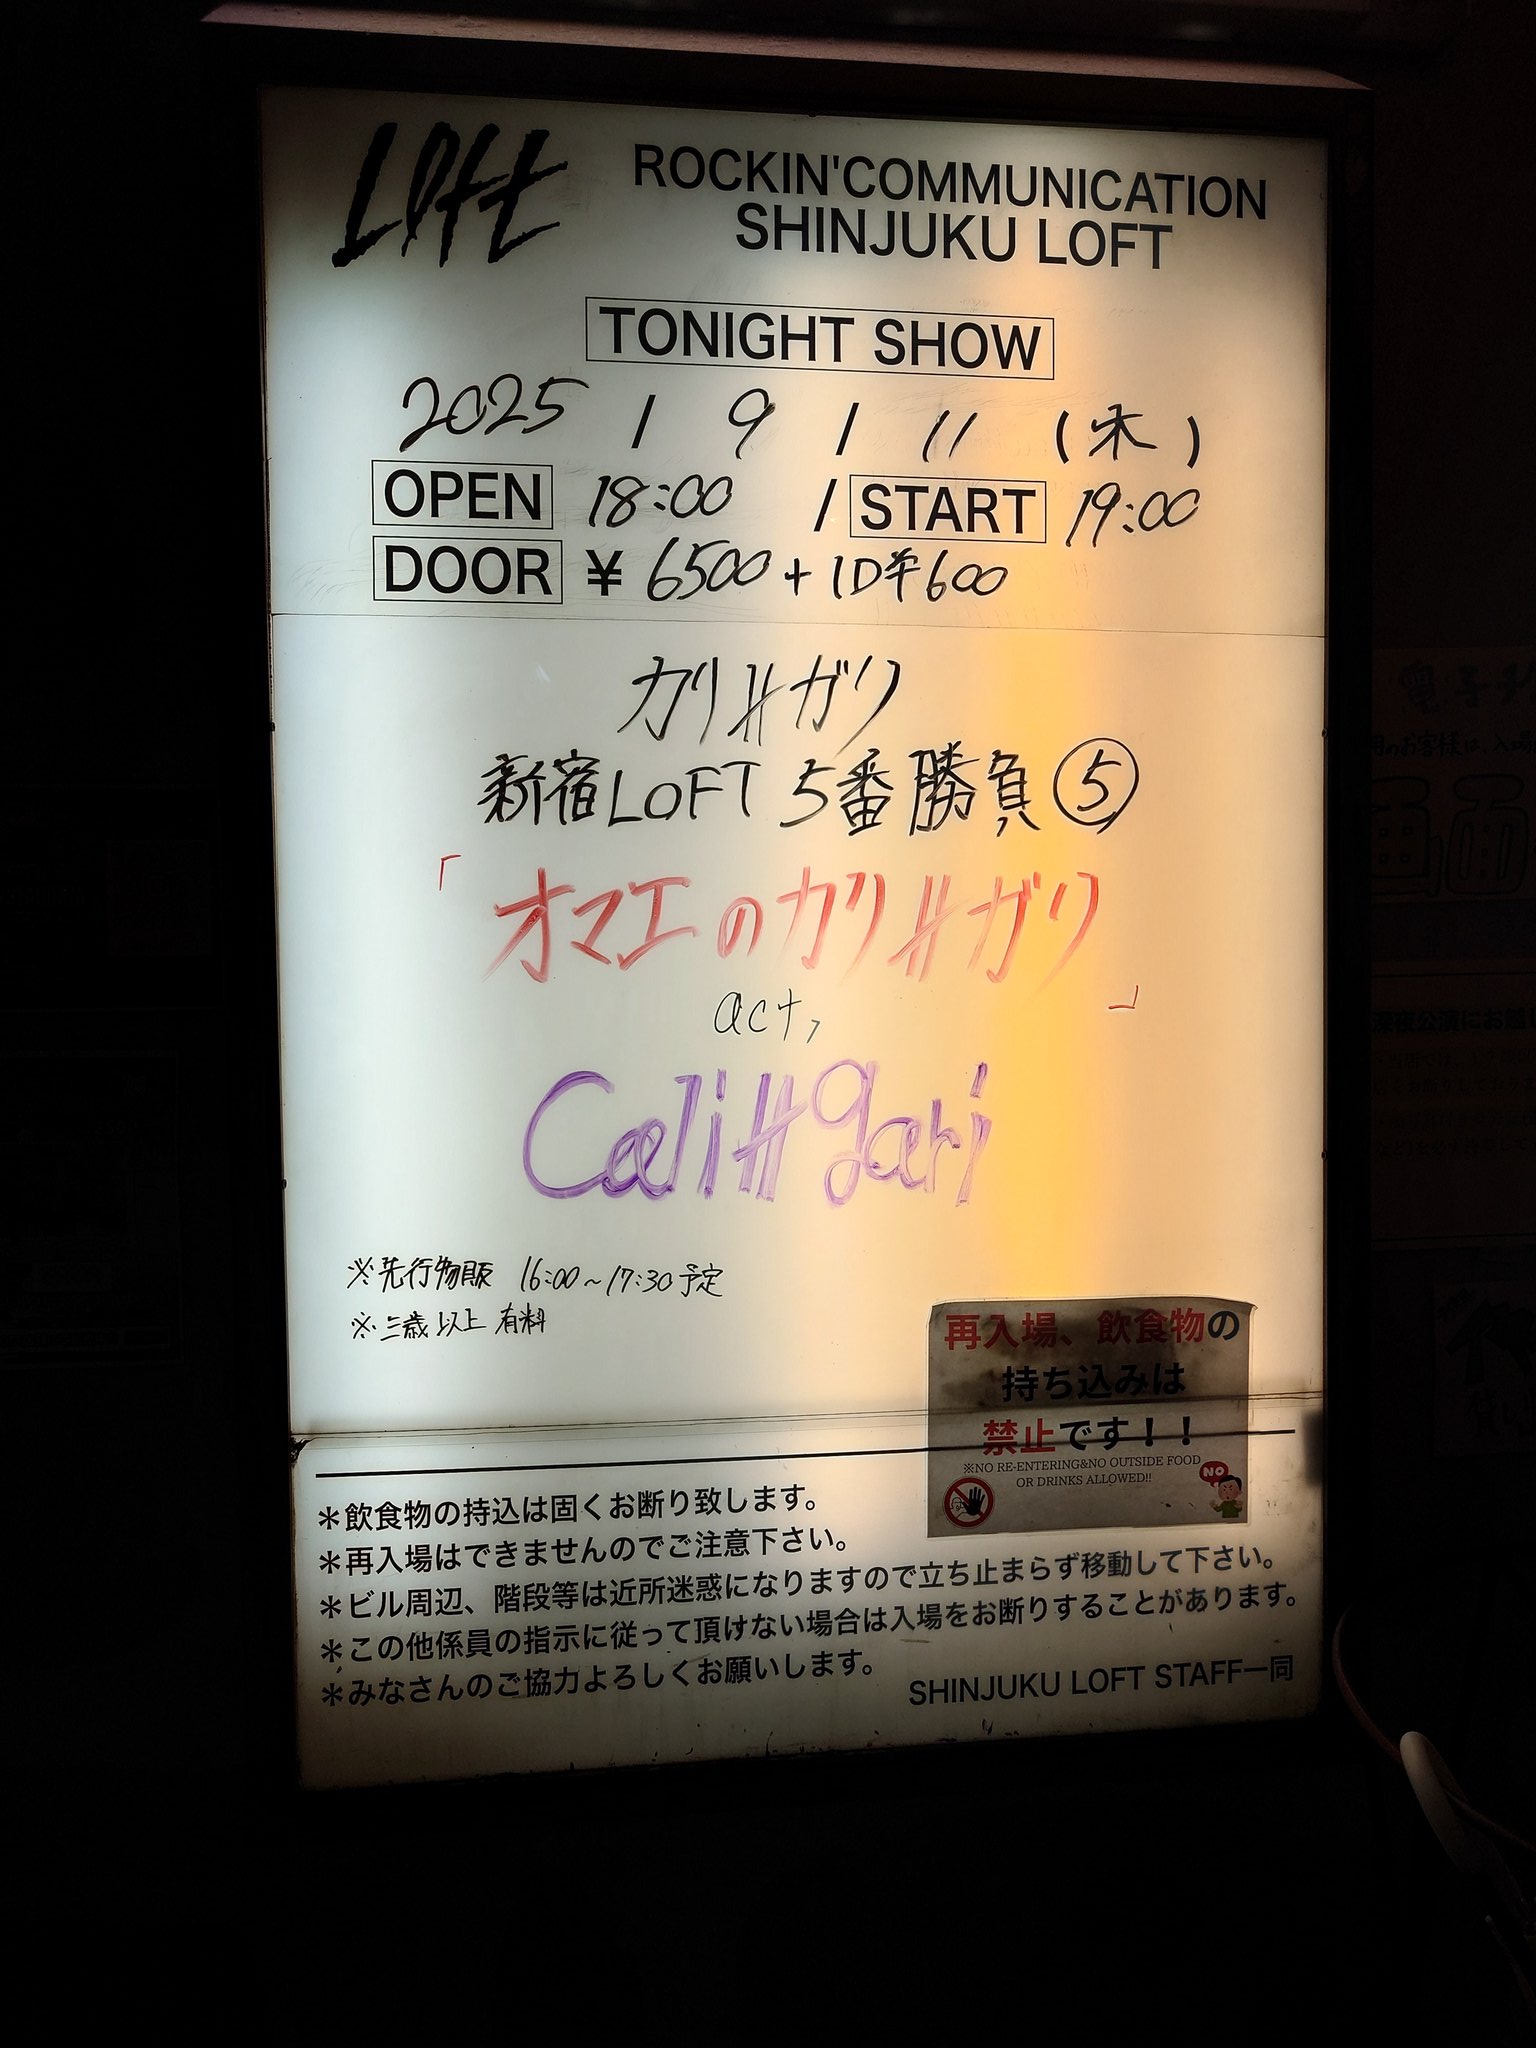 LOFT
ROCKIN'COMMUNICATION
SHINJUKU LOFT
TONIGHT SHOW
2025 / 9 / 11 (木)
OPEN 18:00 / START 19:00
DOOR ¥ 6500 + 1D¥600
カリ≠ガリ
新宿LOFT 5番勝負⑤
「オマエのカリ≠ガリ」
act,
Cali≠gari
※先行物販 16:00~17:30予定
※三歳以上 有料
再入場、飲食物の
持ち込みは
禁止です!!
※NO RE-ENTERING&NO OUTSIDE FOOD
OR DRINKS ALLOWED!!
NO
＊飲食物の持込は固くお断り致します。
＊再入場はできませんのでご注意下さい。
＊ビル周辺、階段等は近所迷惑になりますので立ち止まらず移動して下さい。
＊この他係員の指示に従って頂けない場合は入場をお断りすることがあります。
＊みなさんのご協力よろしくお願いします。
SHINJUKU LOFT STAFF一同
電子チ
お客様は、入場
画面
深夜公演にお越